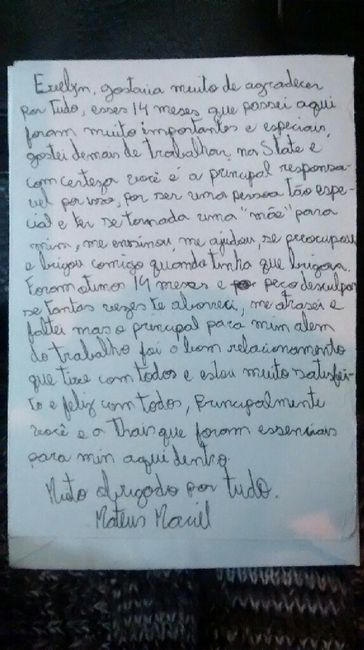 Evelyn, gostaria muito de agradecer
por tudo, esses 14 meses que passei aqui
foram muito importantes e especiais,
gostei demais de trabalhar na State e
com certeza você é a principal responsa-
vel por isso, por ser uma pessoa tão espe-
cial e ter se tornado uma "mãe" para
mim, me ensinou, me ajudou, se preocupou
e brigou comigo quando tinha que brigar.
Foram otimos 14 meses e peço desculpas
se tantas vezes te aborreci, me atrasei e
faltei mas o principal para mim alem
do trabalho foi o bom relacionamento
que tive com todos e estou muito satisfei-
to e feliz com todos, principalmente
você e a Thais que foram essenciais
para min aqui dentro.
Muito obrigado por tudo.
Mateus Maciel